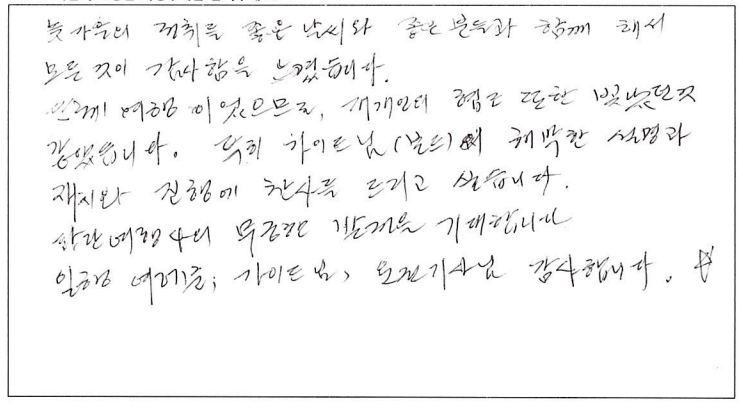 늦가을의 정취를 좋은 날씨와 좋은 분들과 함께 해서
모든 것이 감사함을 느꼈습니다.
단체 여행이었으므로, 개개인의 협조 또한 빛났던것
같았습니다. 특히 가이드님(분들)의 해박한 설명과
재치와 진행에 찬사를 드리고 싶습니다.
여행사의 무궁한 발전을 기대합니다
일행 여러분; 가이드님, 운전기사님 감사합니다.